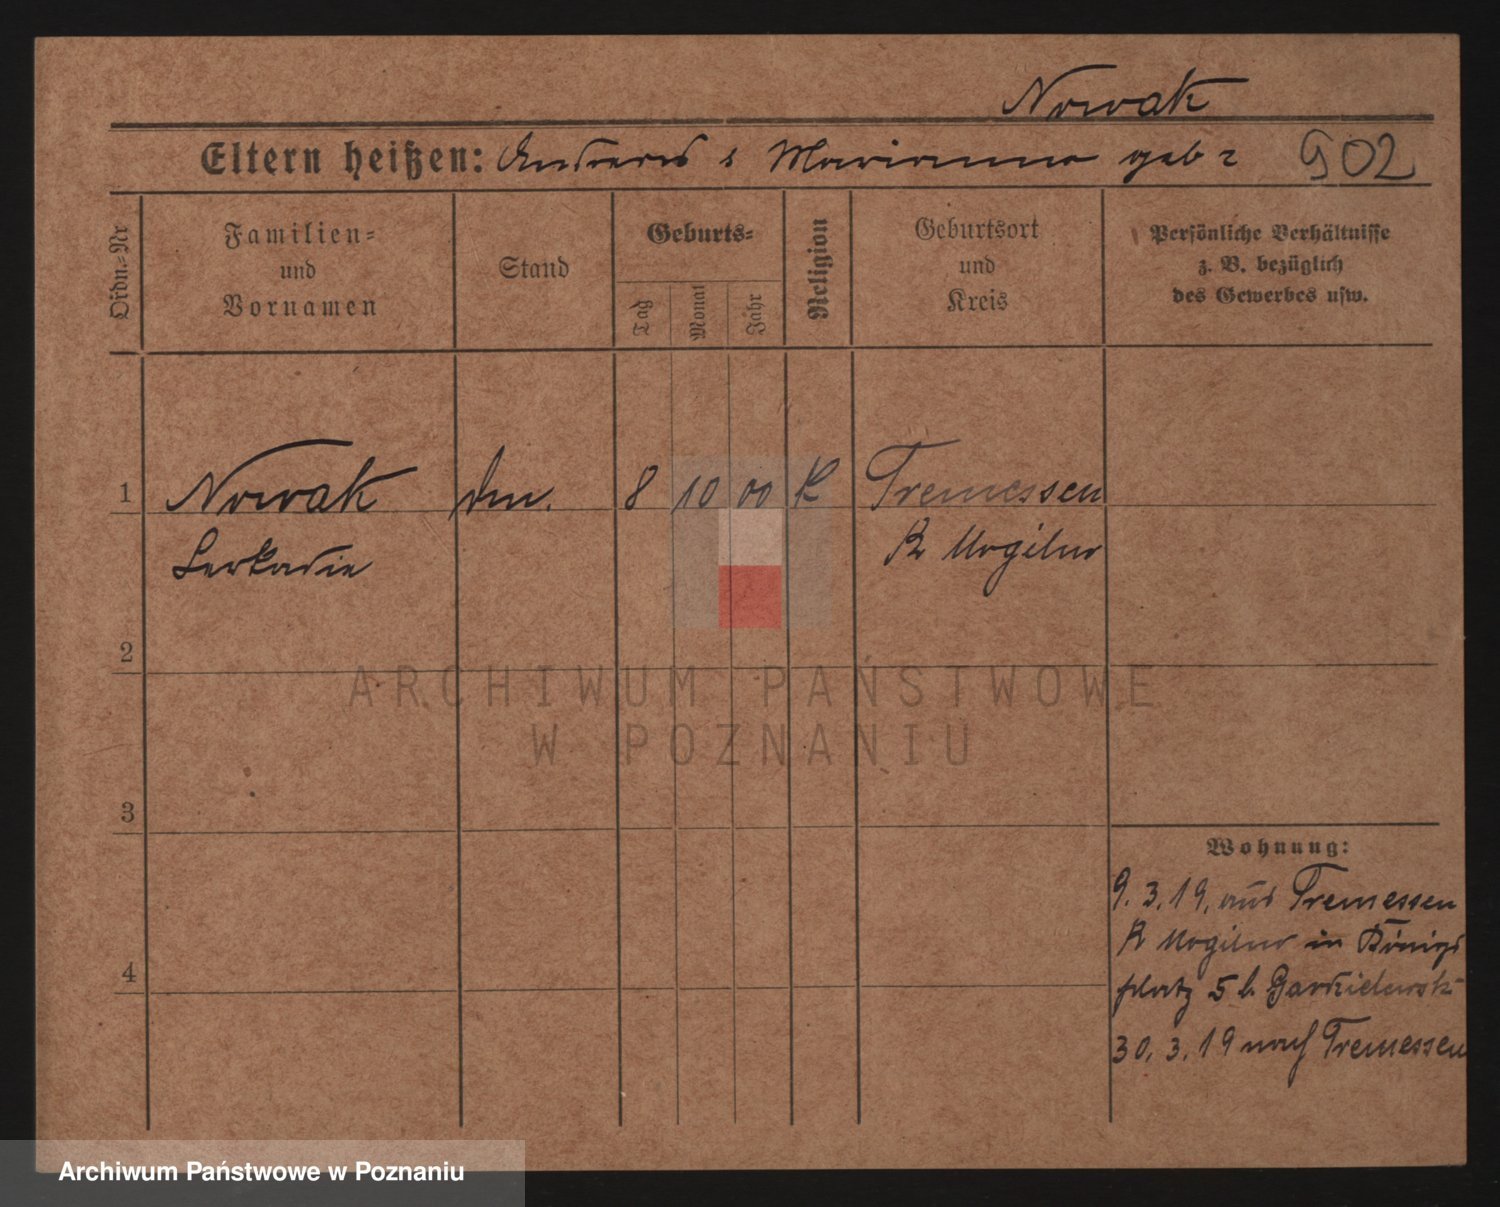 Nowak
Eltern heißen: Andreas & Marianna geb ? 902
Ordn.-Nr
Familien-
und
Vornamen
Stand
Geburts-
Tag
Monat
Jahr
Religion
Geburtsort
und
Kreis
Persönliche Verhältnisse
z. B. bezüglich
des Gewerbes usw.
1 Nowak 8 10 00 K Tremessen
Leokadie K Mogilno
2
3
4
Wohnung:
9. 3. 19. aus Tremessen
K Mogilno in Königs
platz 5 b.
30. 3. 19 nach Tremessen
ARCHIWUM PAŃSTWOWE
W POZNANIU
Archiwum Państwowe w Poznaniu